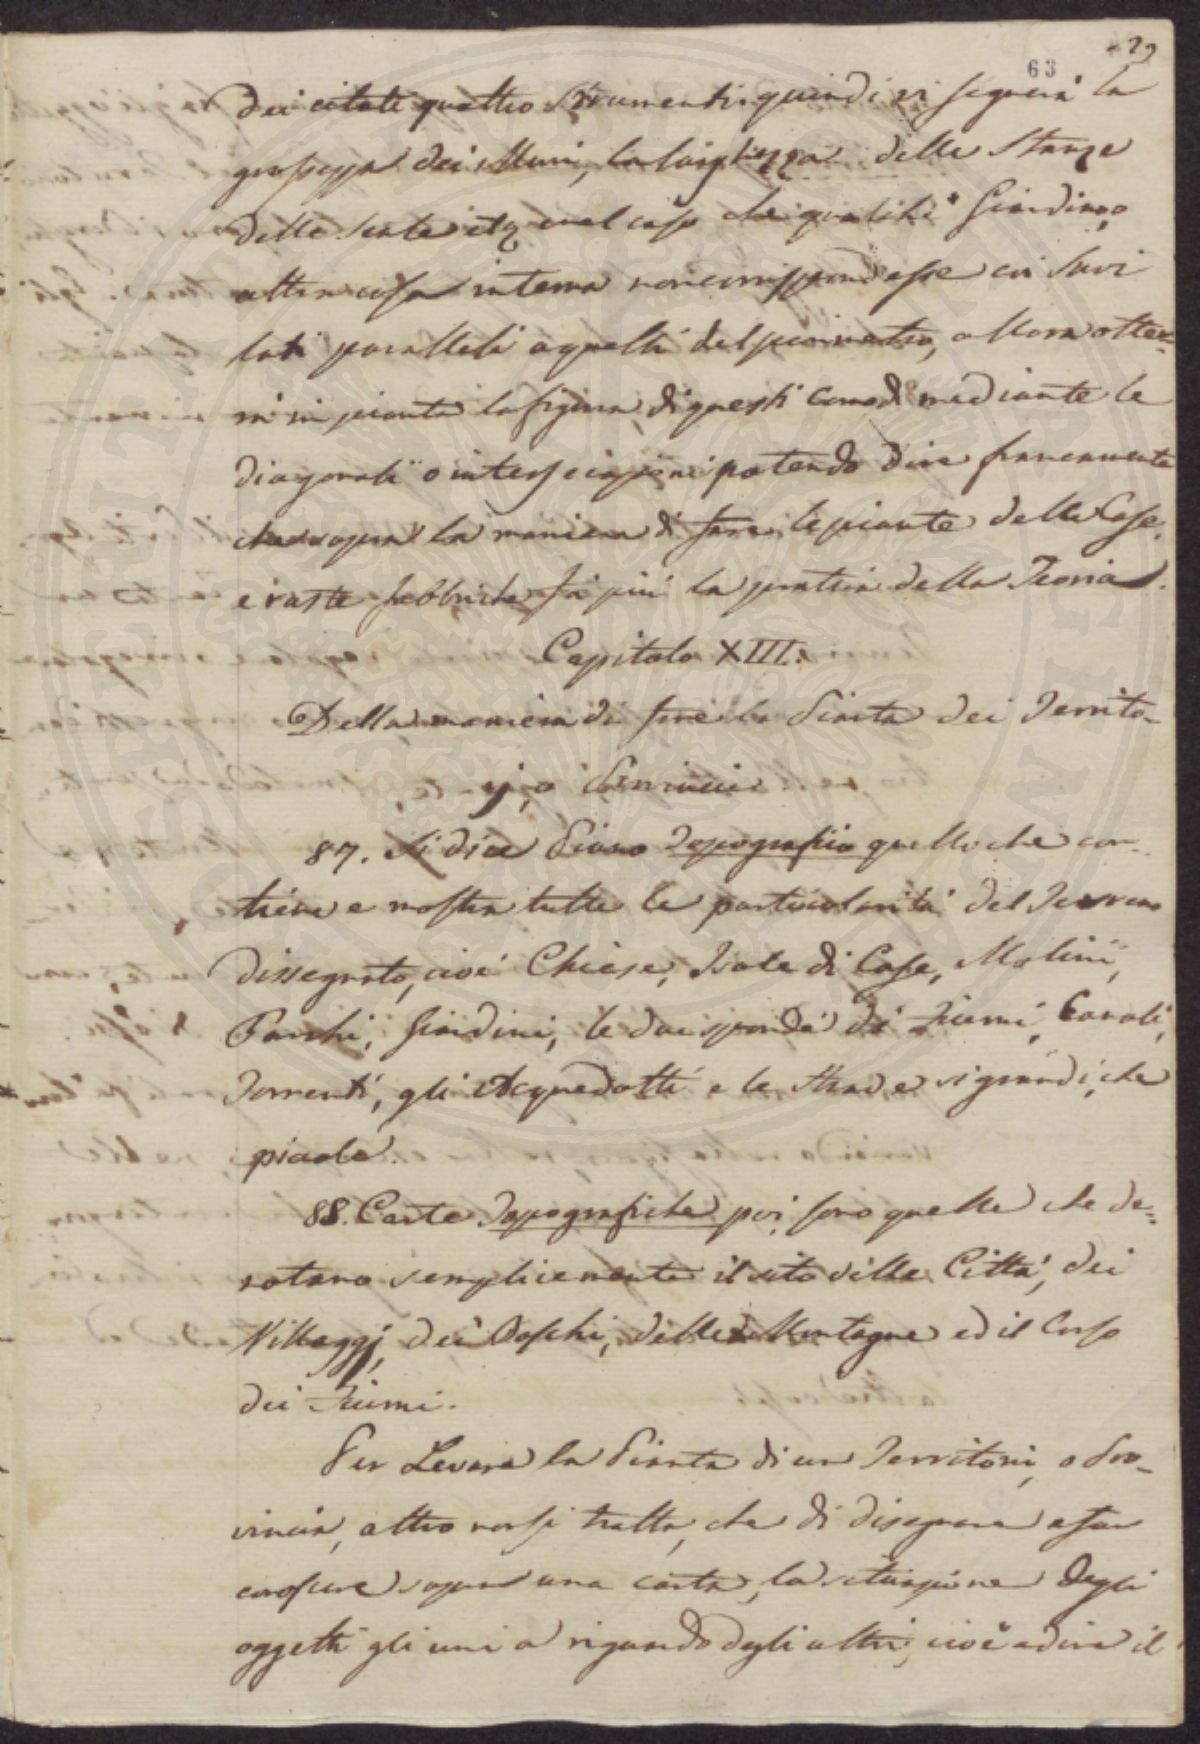 29
63
dei citati quattro strumenti quindi vi segnerà la
grossezza dei Muri, la larghezza delle Stanze
delle Scale etc, e nel caso che qualche Giardino, o
altra cosa interna non corrispondesse coi suoi
lati paralleli a quelli del perimetro, allora otter=
rai in pianta la figura di questi comodi mediante le
diagonali o intersecazioni potendo dire francamente
che sopra la maniera di fare le piante delle Case,
e vaste fabbriche fa più la pratica della Teoria.
Capitolo XIII.
Della maniera di fare la Pianta dei Territo-
rj, o Provincie
87. Si dice Piano Topografico quello che con-
tiene e mostra tutte le particolarità del Terreno
Dissegnato, cioè Chiese, Isole di Case, Molini,
Parchi, Giardini, le due sponde di Fiumi, Canali,
Torrenti, gli Acquedotti e le Strade sì grandi, che
picole.
88. Carte Topografiche poi sono quelle che de=
notano semplicemente il sito delle Città, dei
Villaggj, dei Boschi, delle Montagne ed il Corso
dei Fiumi.
Per Levare la Pianta di un Territorio, o Pro-
vincia, altro non si tratta, che di disegnare e far
conoscere sopra una carta, la situazione degli
oggetti gli uni a riguardo degli altri, cioè a dire il